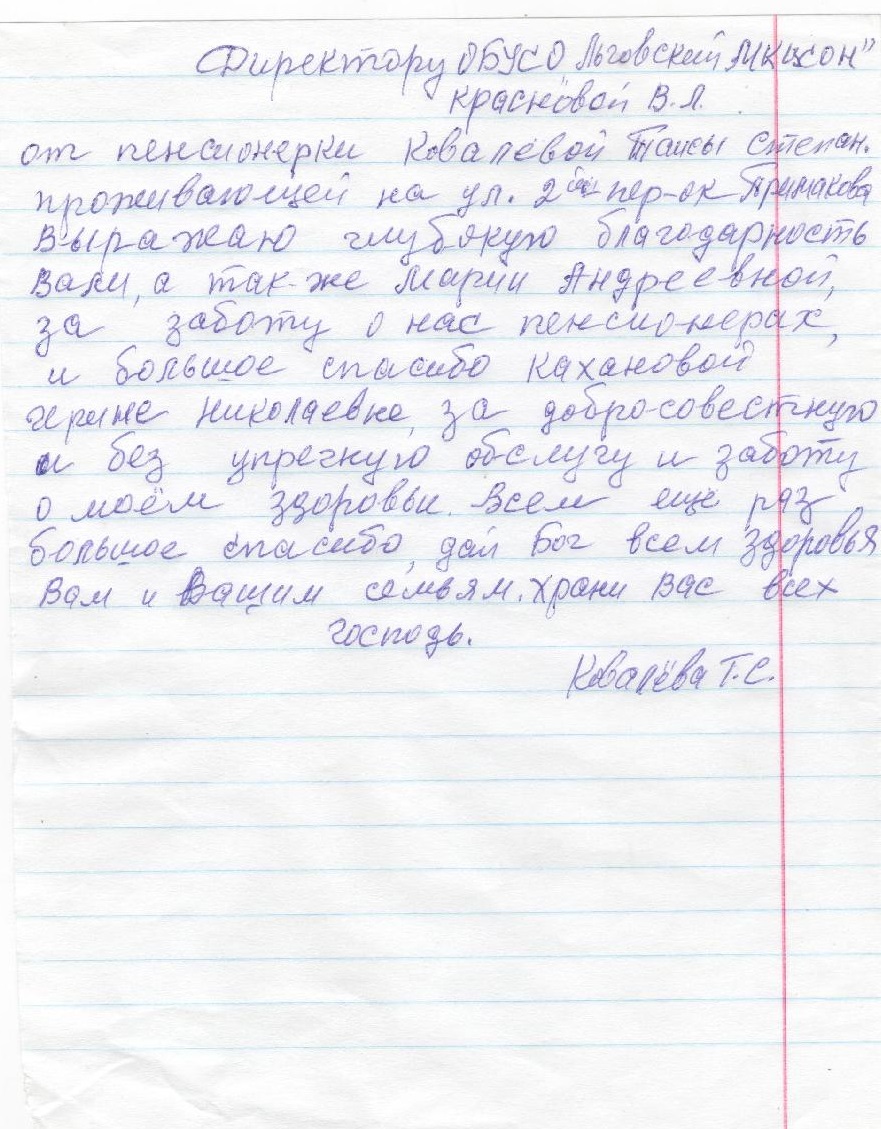 Директору ОБУСО Льговский МКЦСОН"
Красновой В.Л.
от пенсионерки Ковалёвой Таисы Степан.
проживающей на ул. 2ой пер-ок Примакова
Выражаю глубокую благодарность
Вам, а так-же Марии Андреевной,
за заботу о нас пенсионерах,
и большое спасибо Кахановой
Ирине Николаевне, за добросовестную
и без упречную обслугу и заботу
о моём здоровьи. Всем еще раз
большое спасибо, дай Бог всем здоровья
Вам и Вашим семьям. Храни Вас всех
господь.
Ковалёва Т.С.